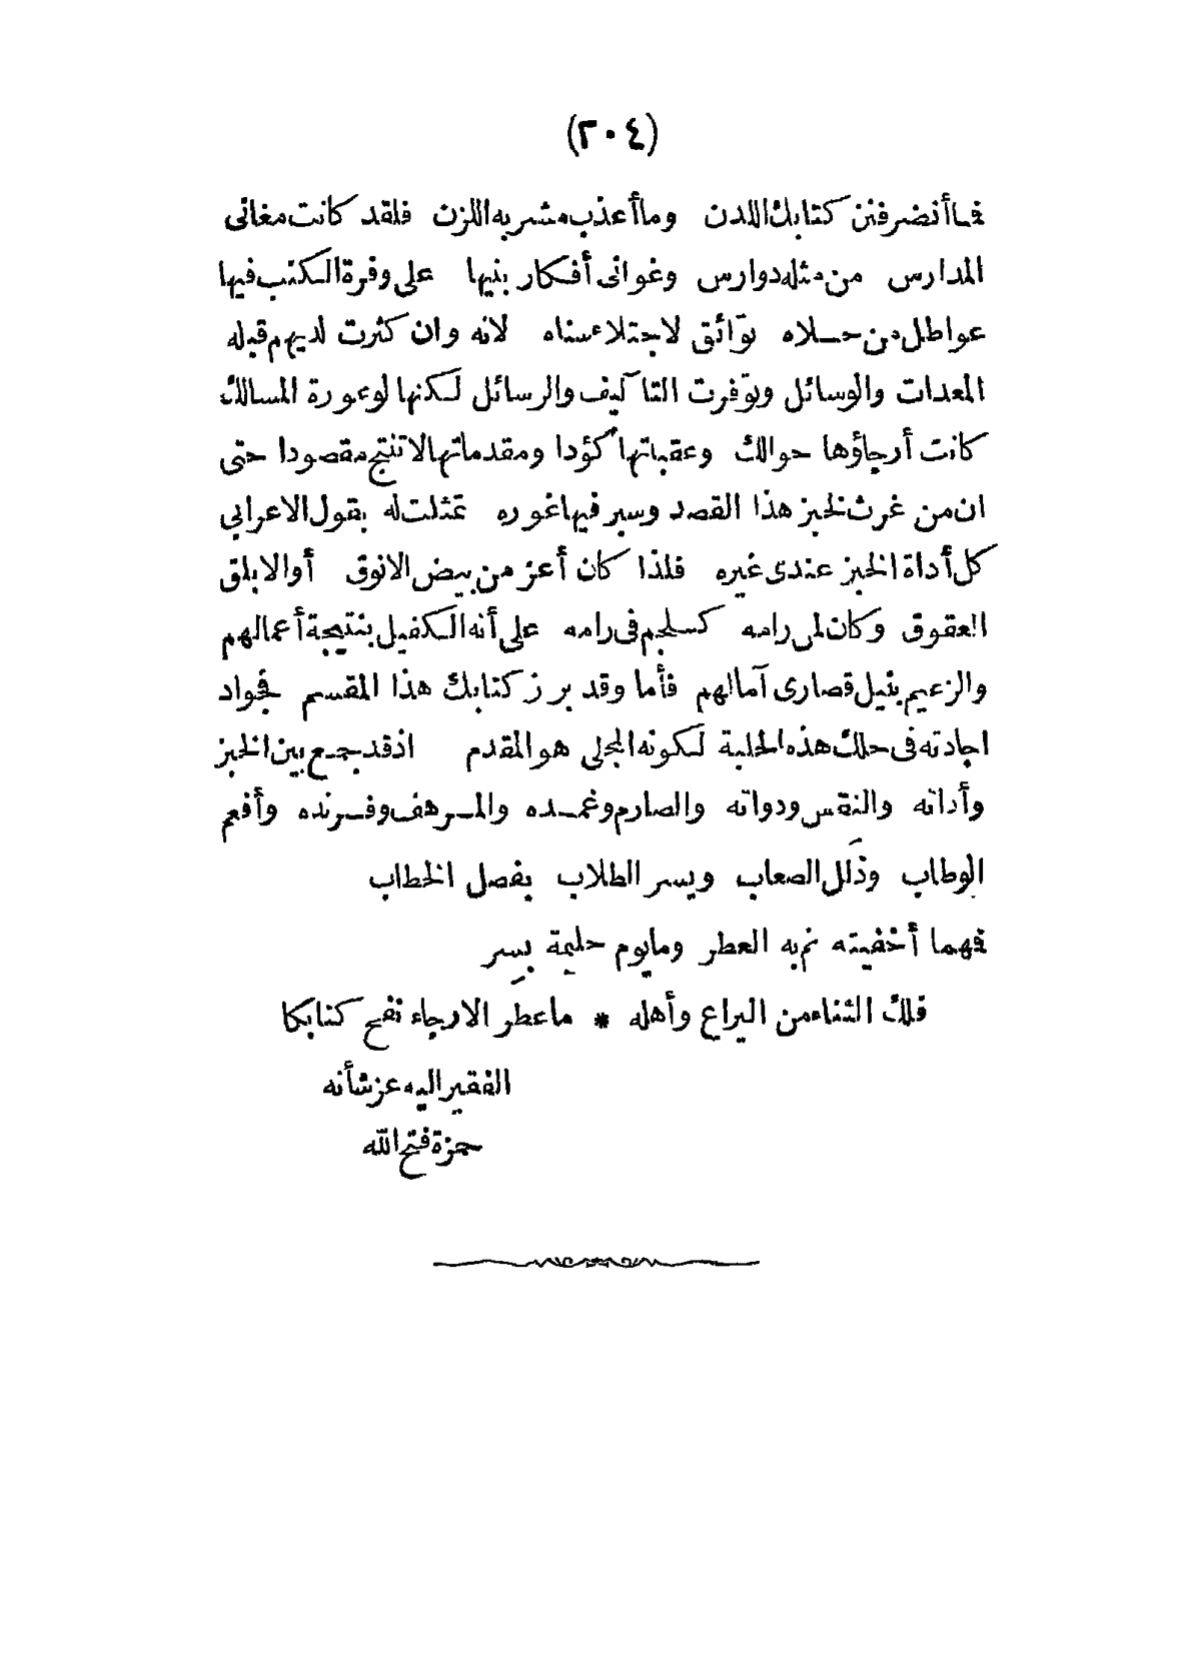 (٢٠٤)
فما أنضر فنن كتابك اللدن وما أعذب مشربه اللزن فلقد كانت مغانى
المدارس من مثله دوارس وغوانى أفكار بنيها على وفرة الكتب فيها
عواطل من حلاه توّائق لاجتلاء سناه لانه وان كثرت لديهم قبله
المعدات والوسائل وتوّفرت التآليف والرسائل لكنها لوعورة المسالك
كانت أرجاؤها حوالك وعقباتها كؤدا ومقدماتها لا تنتج مقصودا حتى
ان من غرث لخبز هذا القصد وسبر فيها غوره تمثلت له بقول الاعرابي
كل أداة الخبز عندى غيره فلذا كان أعز من بيض الانوق أو الابلق
العقوق وكان لمن رامه كسلجم فى رامه على أنه الكفيل بنتيجة أعمالهم
والزعيم بنيل قصارى آمالهم فأما وقد برز كتابك هذا المقسم فجواد
اجادته فى حلك هذه الحلبة لكونه المجلى هو المقدم اذ قد جمع بين الخبز
وأداته والنقس ودواته والصارم وغمده والمرهف وفرنده وأفعم
الوطاب وذَلل الصعاب ويسر الطلاب بفصل الخطاب
فهما أخفيته نم به العطر وما يوم حليمة بسِر
فلك الثناء من اليراع وأهله * ما عطر الارجاء نفح كتابكا
الفقير اليه عز شأنه
حمزة فتح الله